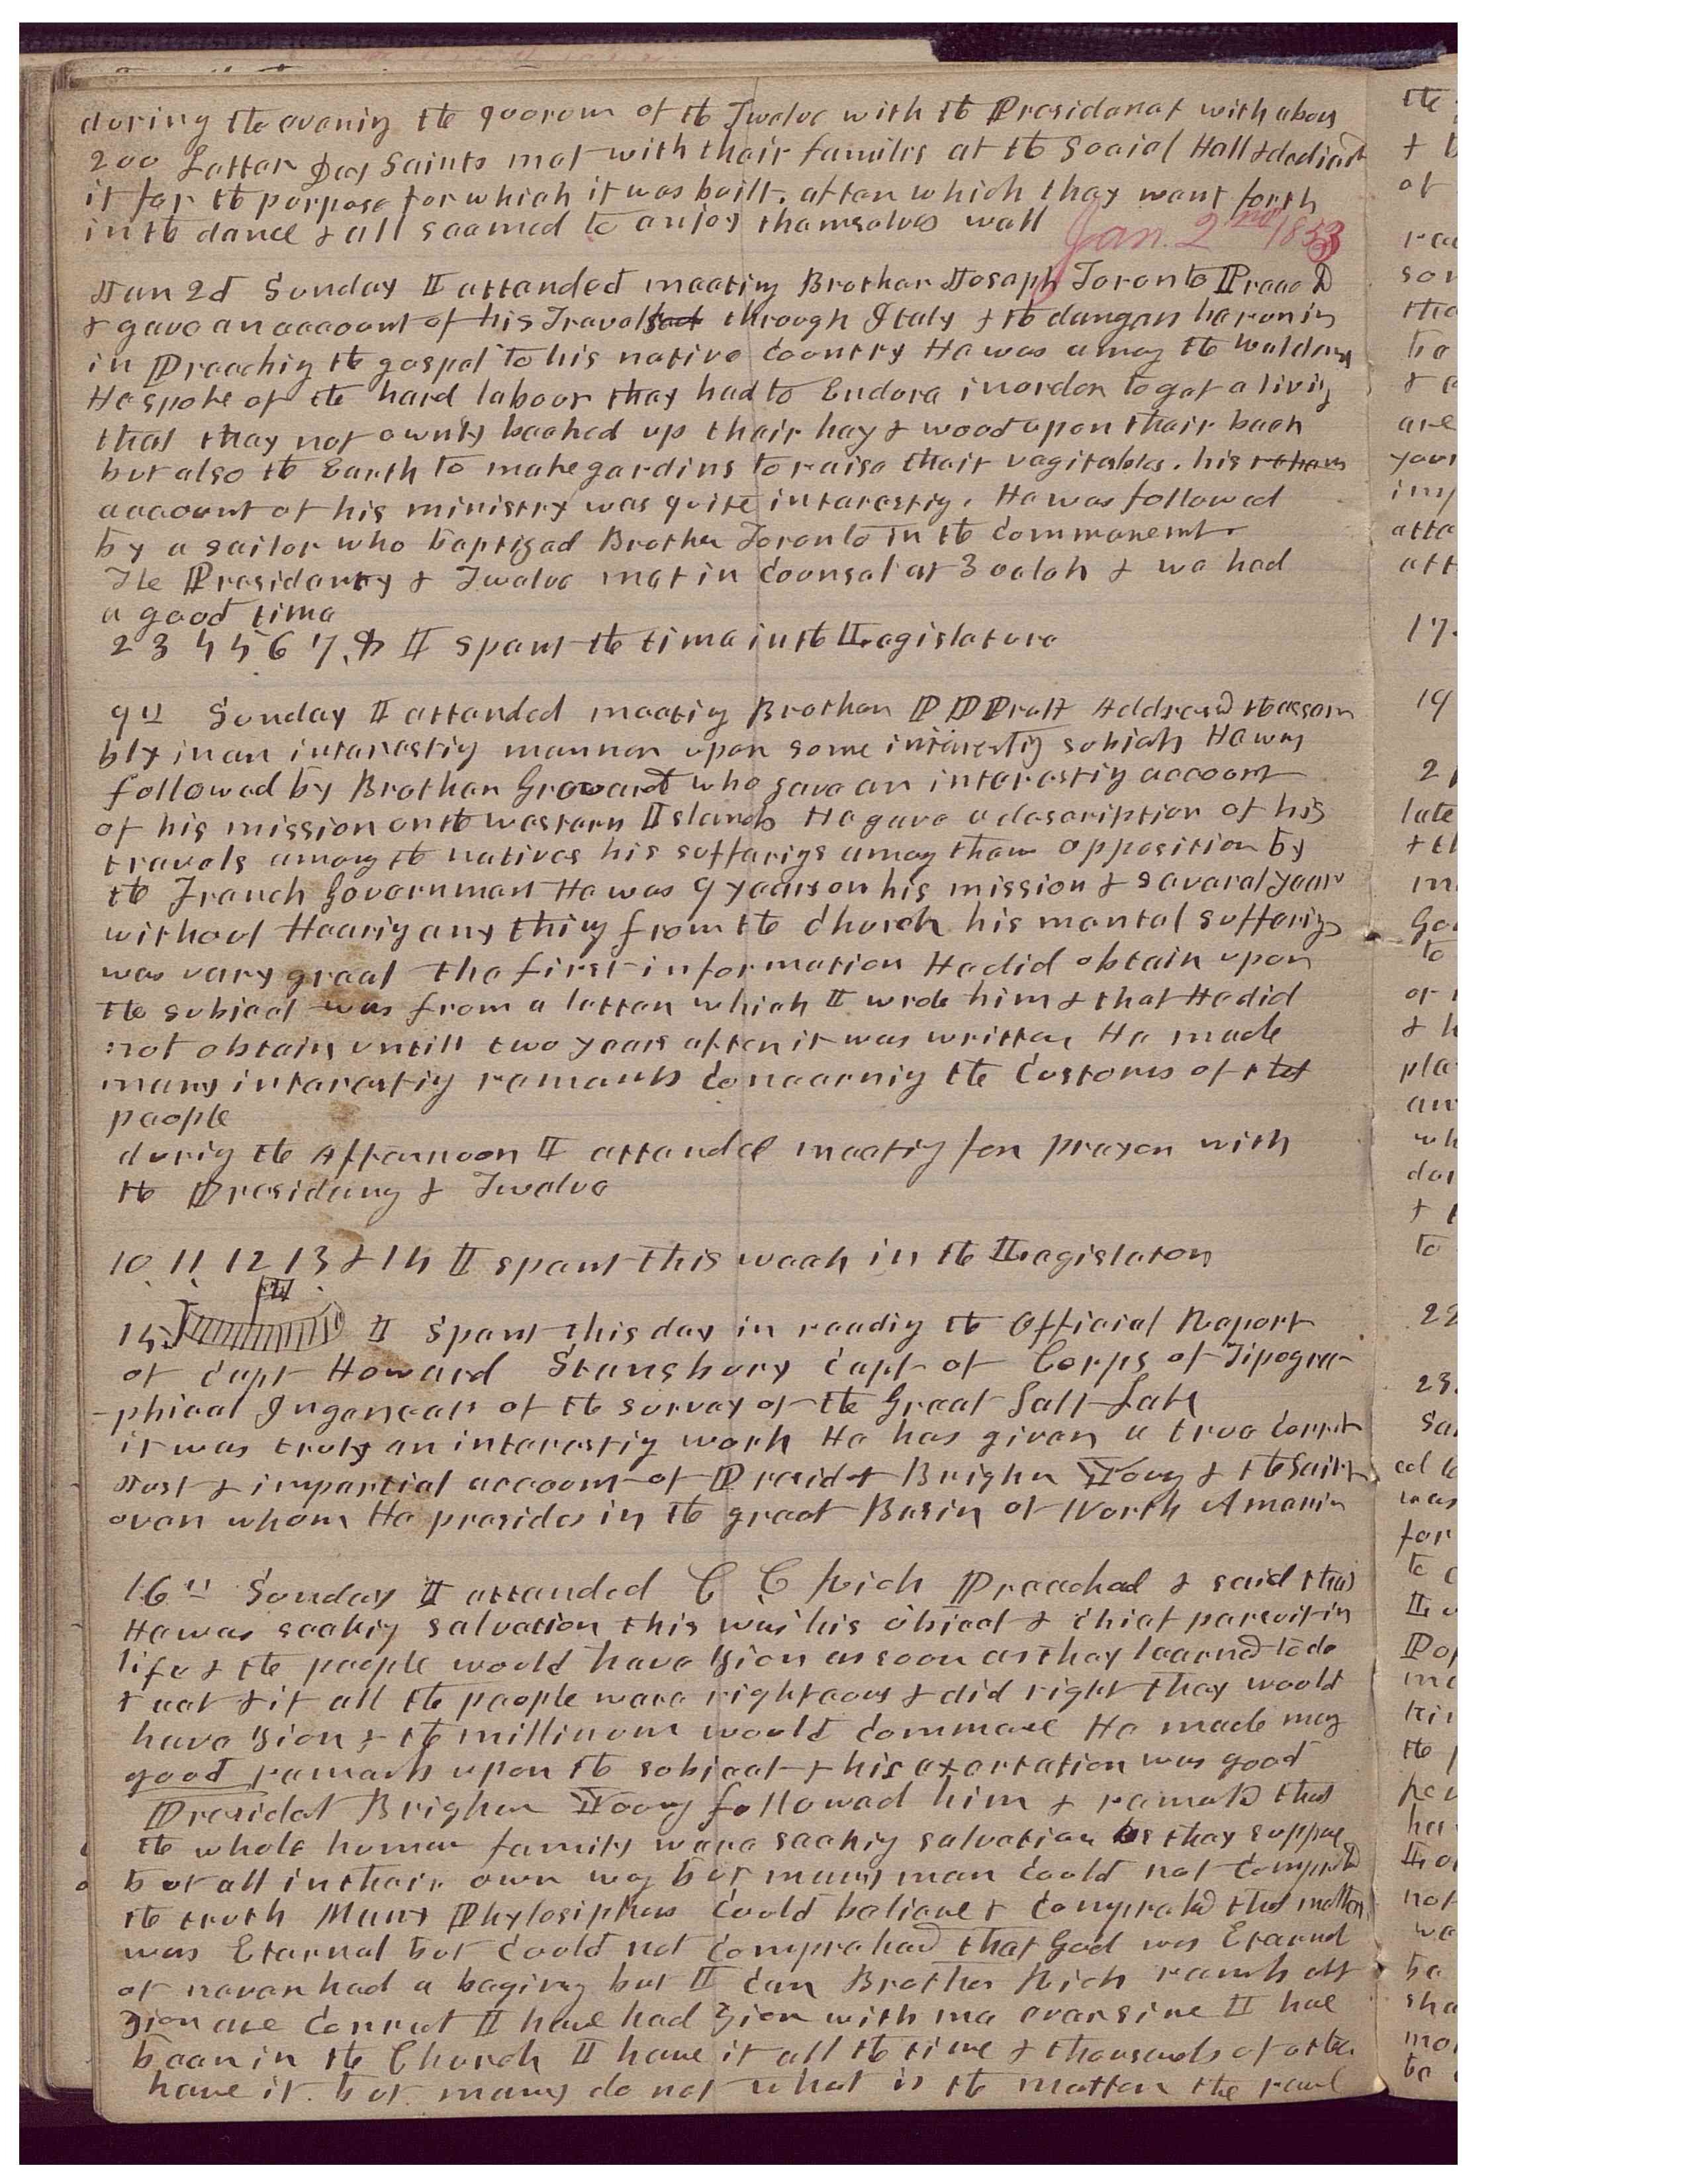 during the evening the quorum of the Twelve with the Presidency with about
200 Latter Day Saints met with their families at the Social Hall & dedicat
it for the purpose for which it was built. after which they went forth
in the dance & all seemed to enjoy themselves well
Jan. 2nd 1853
Jan 2d Sunday I attended meeting Brother Joseph Toronto Preached
& gave an account of his Travels through Italy & the dangers he run in
in Preaching the gospel to his native Country He was among the Waldens
He spoke of the hard labour they had to Endure in order to get a living
that they not ownly backed up their hay & wood upon their back
but also the Earth to make gardins to raise their vegitables. his
account of his ministry was quite interesting. He was followed
by a sailor who baptized Brother Toronto in the commencement.
The Presidency & Twelve met in Counsel at 3 oclok & we had
a good time
2 3 4 5 6 7, 8 I spent the time in the Legislature
9th Sunday I attended meeting Brother P P Pratt Addressed the assem
bly in an interesting manner upon some interesting subjects He was
followed by Brother Grouard who gave an interesting account
of his mission on the western Islands He gave a description of his
travels among the natives his sufferings among them opposition by
the French Government He was 9 years on his mission & several years
without Hearing any thing from the Church his mental sufferings
was very great the first information He did obtain upon
the subject was from a letter which I wrote him & that He did
not obtain untill two years after it was written He made
many interesting remarks concerning the Customs of that
people
during the Afternoon I attended meeting for prayer with
the Presidency & Twelve
10 11 12 13 & 14 I spent this week in the Legislator
15. I spent this day in reading the Official Report
of Capt Howard Stansbury Capt of Corps of Tipogra-
-phical Ingeneears of the survey of the Great Salt Lake
it was truly an interesting work He has given a true Corret
Just & impartial account of Presidt Brigham Young & the Saints
over whom He presides in the great Basin of North America
16th Sunday I attended C C Rich Preached & said that
He was seeking salvation this was his object & chief pursuit in
life & the people would have Zion as soon as they learned to do
right & if all the people were righteous & did right they would
have Zion & the millinoum would commence He made many
good remarks upon the subject & his exortation was good
President Brigham Young followed him & remarked that
the whole human family were seeking salvation as they suppose
but all in their own way but many men could not comprehd
the truth Many Phylosiphers Could believe & comprehend that matter
was Eternal but could not comprehend that God was Eternal
or never had a begining but I Can Brother Rich remarks of
Zion are Correct I have had Zion with me ever since I have
been in the Church I have it all the time & thousands of others
have it. but many do not what is the matter the